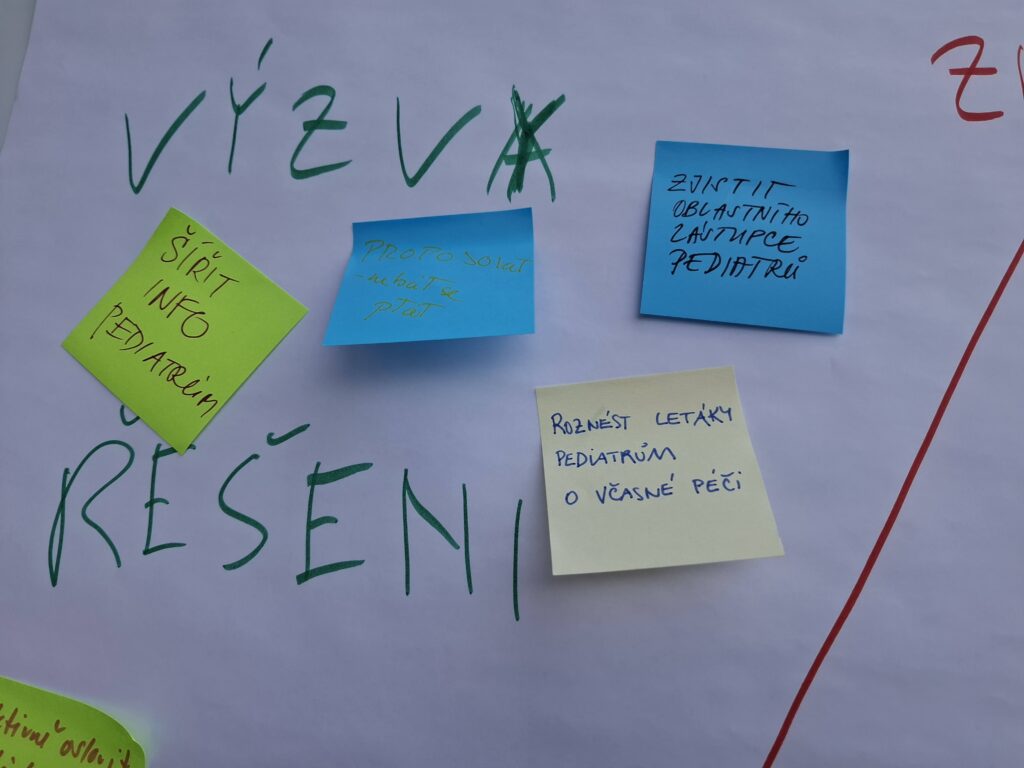 VÝZVA
ZJISTIT
OBLASTNÍHO
ZÁSTUPCE
PEDIATRŮ
ŠÍŘIT
INFO
PEDIATRŮM
- nebát se
ptát
ROZNÉST LETÁKY
PEDIATRŮM
O VČASNÉ PÉČI
ŘEŠENÍ
oslovit